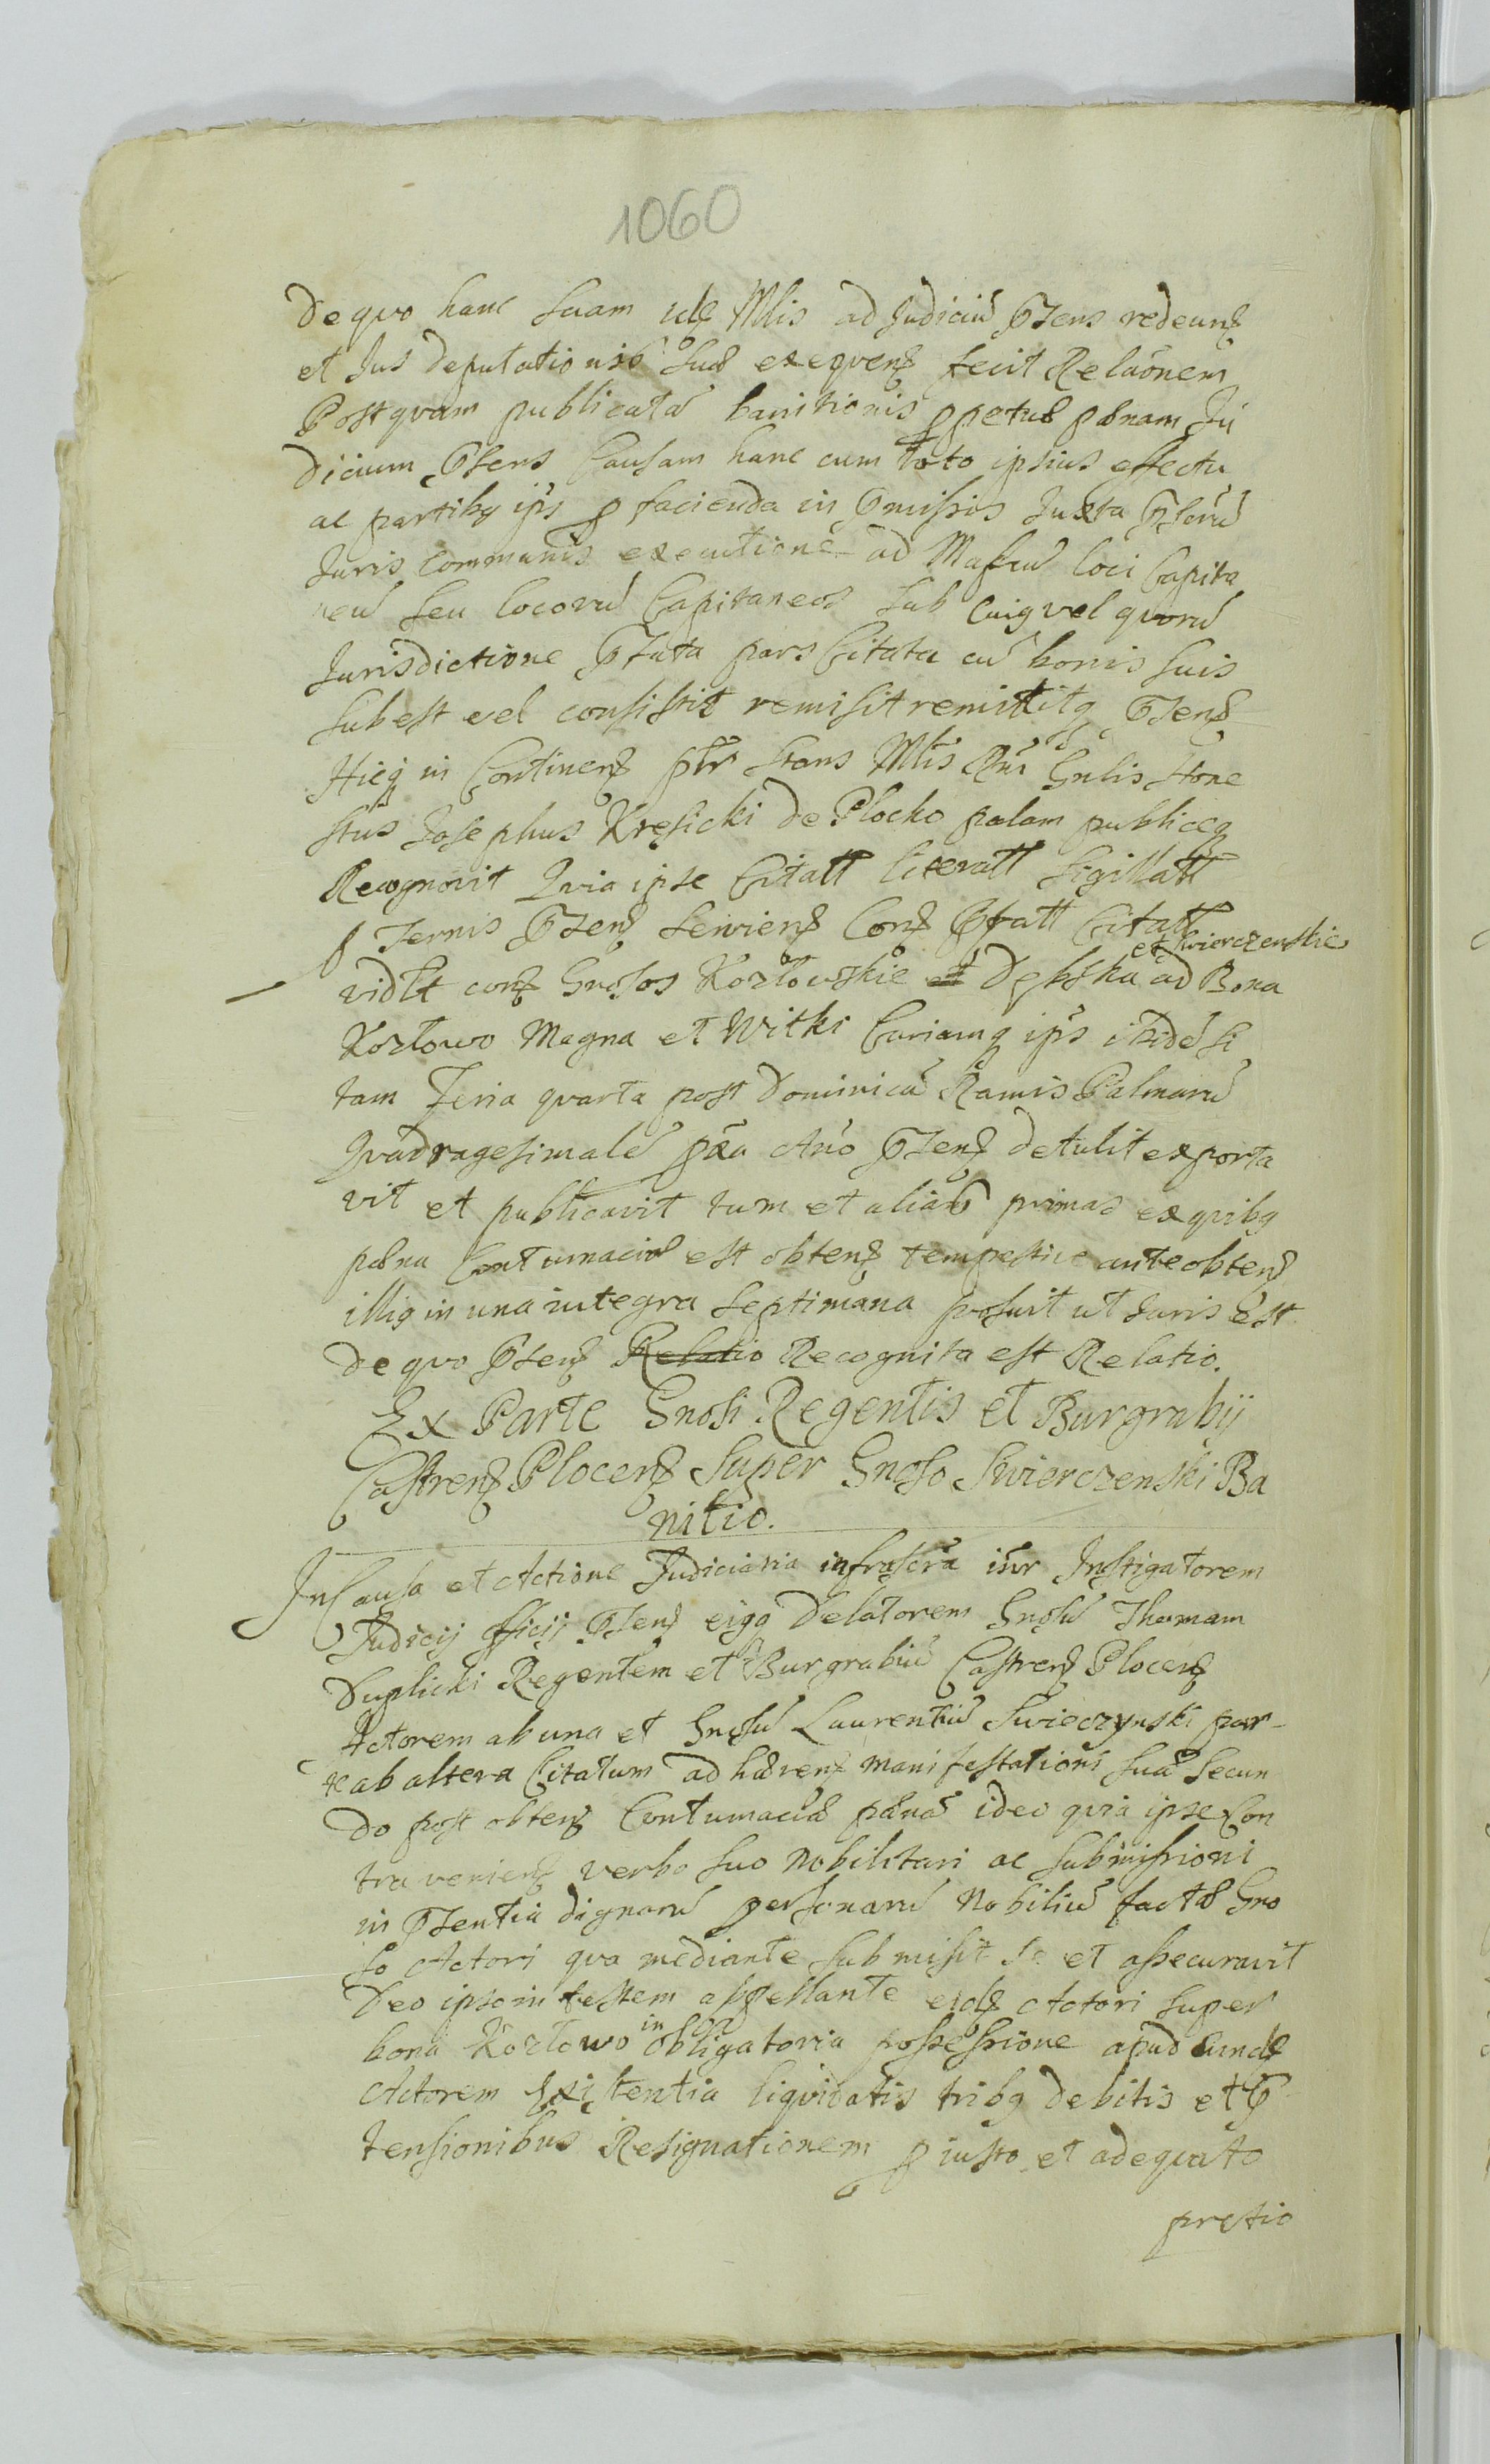 1060
De quo hanc suam idę Mlis ad Judiciū pñens redeunę
et Jus deputationis suæ exequenę fecit Relaõnem
Postquam publicatã banitionis ppetuæ pænam Ju
dicium pñens Causam hanc cum toto ipsius effectu
ac partibq ips p facienda in pmissis Juxta pscrū
Juris communis executione ad Mafcū loci Capita
neū seu locorū Capitaneos sub cuiq vel quorū
Jurisdictione pfata pars Citata cū bonis suis
subest vel consistit remisit remittitq pñenę
Hicq in Continenę pŕtr stans Mlis Rni Gnlis Hone
stus Josephus Kręsicki de Plocko palam publiceq
Recognovit Quia ipse Citatt literatt sigillatt
p Ternis pñenę serwienę Conę pfatt Citatt
vidlt conę Gnosos Kozłowskie Dębska et Swierczenskie ad Bona
Kozłowo Magna et Witki Curiamq ips ibidē si
tam Feria quarta post Dominicā Ramis Palmarū
Quadragesimalē pxa Año pñenę detulit exporta
vit et publicavit tum et alias primas ex quibq
pæna Contumaciæ est obtenę tempestive ante obtenę
illiq in una integra septimana posuit ut Juris Est
De quo pñenę Relatio Recognita est Relatio.
Ex Parte Gnosi Regentis et Burgrabij
Castrenę Plocenę Super Gnoso Swierczenski Ba
nitio.
In Causa et Actione Judiciaria infrascrã inr Instigatorem
Judicij officij pñenę eiqq Delatorem Gnosū Thomam
Duplicki Regentem et Burgrabiū Castrenę Plocenę
Actorem ab una et Gnosū Laurentiū Swieczynski par-
te ab altera Citatum ad hærenę manifestationi suæ Secun
do post obtenę Contumaciæ pænā ideo quia ipse Con
travenienę verbo suo Nobilitari ac submissioni
in pñentia dignarū personarū Nobiliū factæ Gno
so Actori qua mediante submisit se et assecuravit
Deo ipso in testem appellante eidę Actori super
bona Kozłowo in obligatoria possessione apud eundę
Actorem Existentia liquidatis tribq debitis et p
tensionibus Resignationem p iusto et adequato
pretio